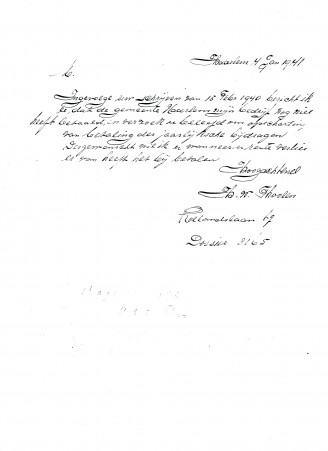 Haarlem 4 Jan 1941
M.
Ingevolge uw schrijven van 15 Febr 1940 bericht ik
U dat de gemeente Haarlem mijn bedrijf nog niet
heeft betaald, verzoek u beleefd om opschorting
van betaling der jaarlijksche bijdragen
wanneer u rente verlies
er van heeft het bij betalen
Hoogachtend
Th. W. Thoolen
Roelandslaan 19
Dossier 3165